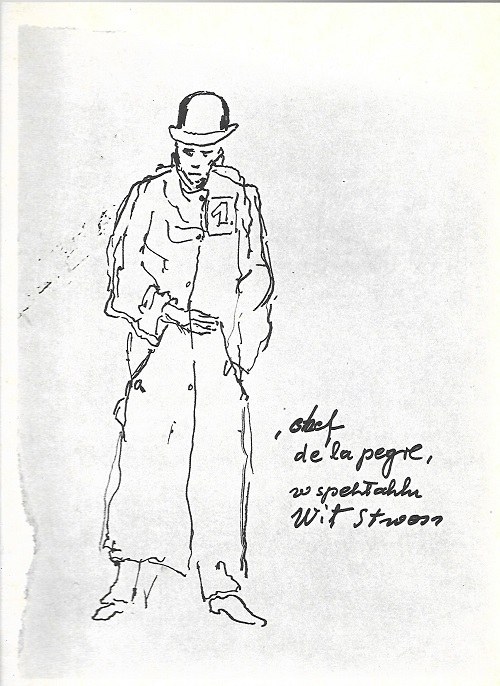 1.
, chef
de la pegre,
w spektaklu
Wit Stwosz